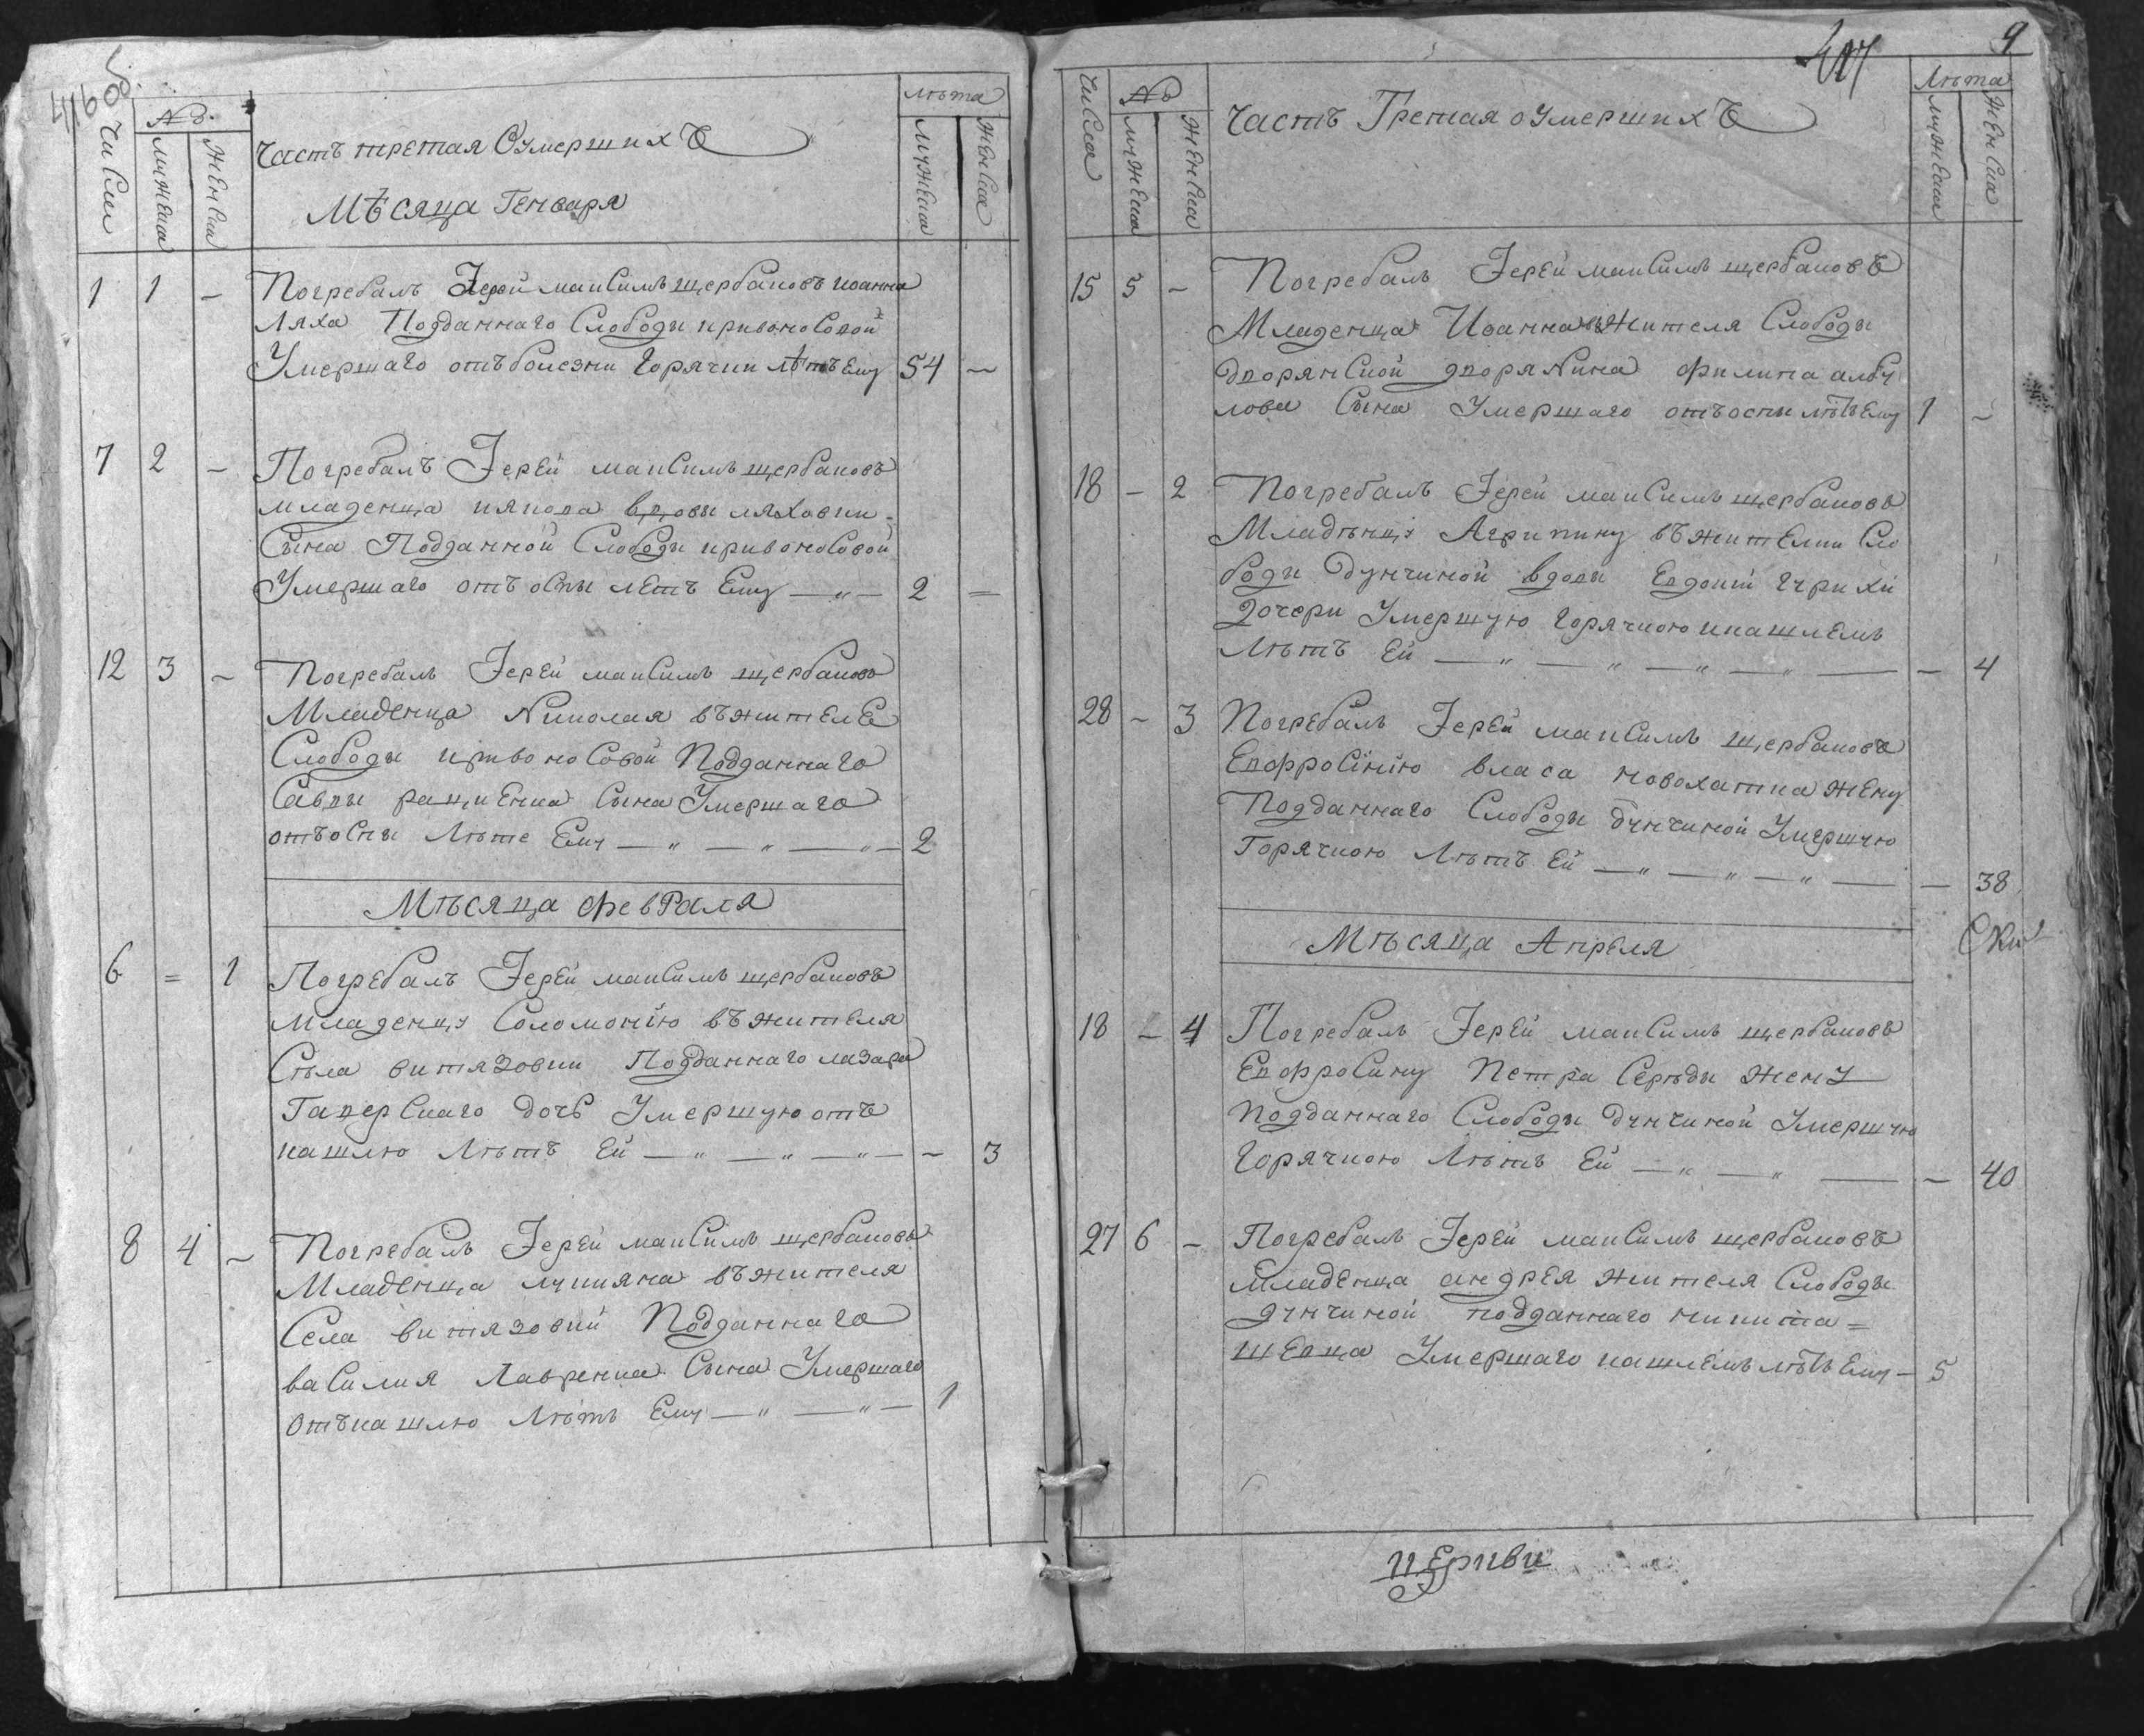 416 об.
Числи
№.
мужеска
женска
Часть третая О умершихъ
лѣта
мужеска
женска
Мѣсяца Генваря
1 1 – Погребалъ Іерей максимъ щербаковъ иоанна
Ляха Подданнаго Слободы кривоносовой
Умершаго отъ болезни горячки лѣтъ Ему 54 –
7 2 – Погребалъ Іерей максимъ щербаковъ
младенца иякова вдовы ляховки-
Сына Подданной Слободы кривоносовой
Умершаго отъ оспы летъ Ему — „ — 2 =
12 3 – Погребалъ Іерей максимъ щербаковъ
Младенца Николая въ жителе
Слободы кривоносовой Подданнаго
Саввы ращенка Сына Умершаго
отъ оспы Лѣте Ему — „ — „ — „ — 2
Мѣсяца февраля
6 = 1 Погребалъ Іерей максимъ щербаковъ
младенцу Соломонію въ жителя
Сѣла витязовки Подданнаго лазаря
Гаверскаго дочь Умершую отъ
кашлю Лѣтъ Ей — „ — „ — „ — – 3
8 4 – Погребалъ Іерей максимъ щербаковъ
Младенца лукияна въ жителя
Села витязовки Подданнаго
василия Лавренка Сына Умершаго
отъ кашлю Лѣтъ Ему — „ — „ — 1
417
9
Числа
№
мужеска
женска
Часть Третая о умершихъ
Лѣта
мужеска
женска
15 5 – Погребалъ Іерей максимъ щербаковъ
Младенца Иоанна жителя Слободы
дворянской дворянина филипа албу
лова Сына Умершаго отъ оспы лѣтъ Ему 1 –
18 – 2 Погребалъ Іерей максимъ щербаковъ
Младѣнцу Агрипину въ жителки Сло
боды дунчиной вдовы Евдокіи гурихи
дочери Умершую горячкою икашлемъ
Лѣтъ Ей — „ — „ — „ — „ — – 4
28 – 3 Погребалъ Іерей максимъ щербаковъ
Евфросінію власа новохатка жену
Подданнаго Слободы дунчиной Умершую
Горячкою Лѣтъ Ей — „ — „ — „ — – 38
Мѣсяца Апреля
18 – 4 Погребалъ Іерей максимъ щербаковъ
Евфросину Петра Серѣды жену
подданнаго Слободы дунчиной Умершую
Горячкою Лѣтъ Ей — „ — „ — – 40
27 6 – Погребалъ Іерей максимъ щербаковъ
младенца андрея жителя Слободы
дунчиной подданнаго никита=
шевца Умершаго кашлемъ лѣтъ Ему – 5
церкви